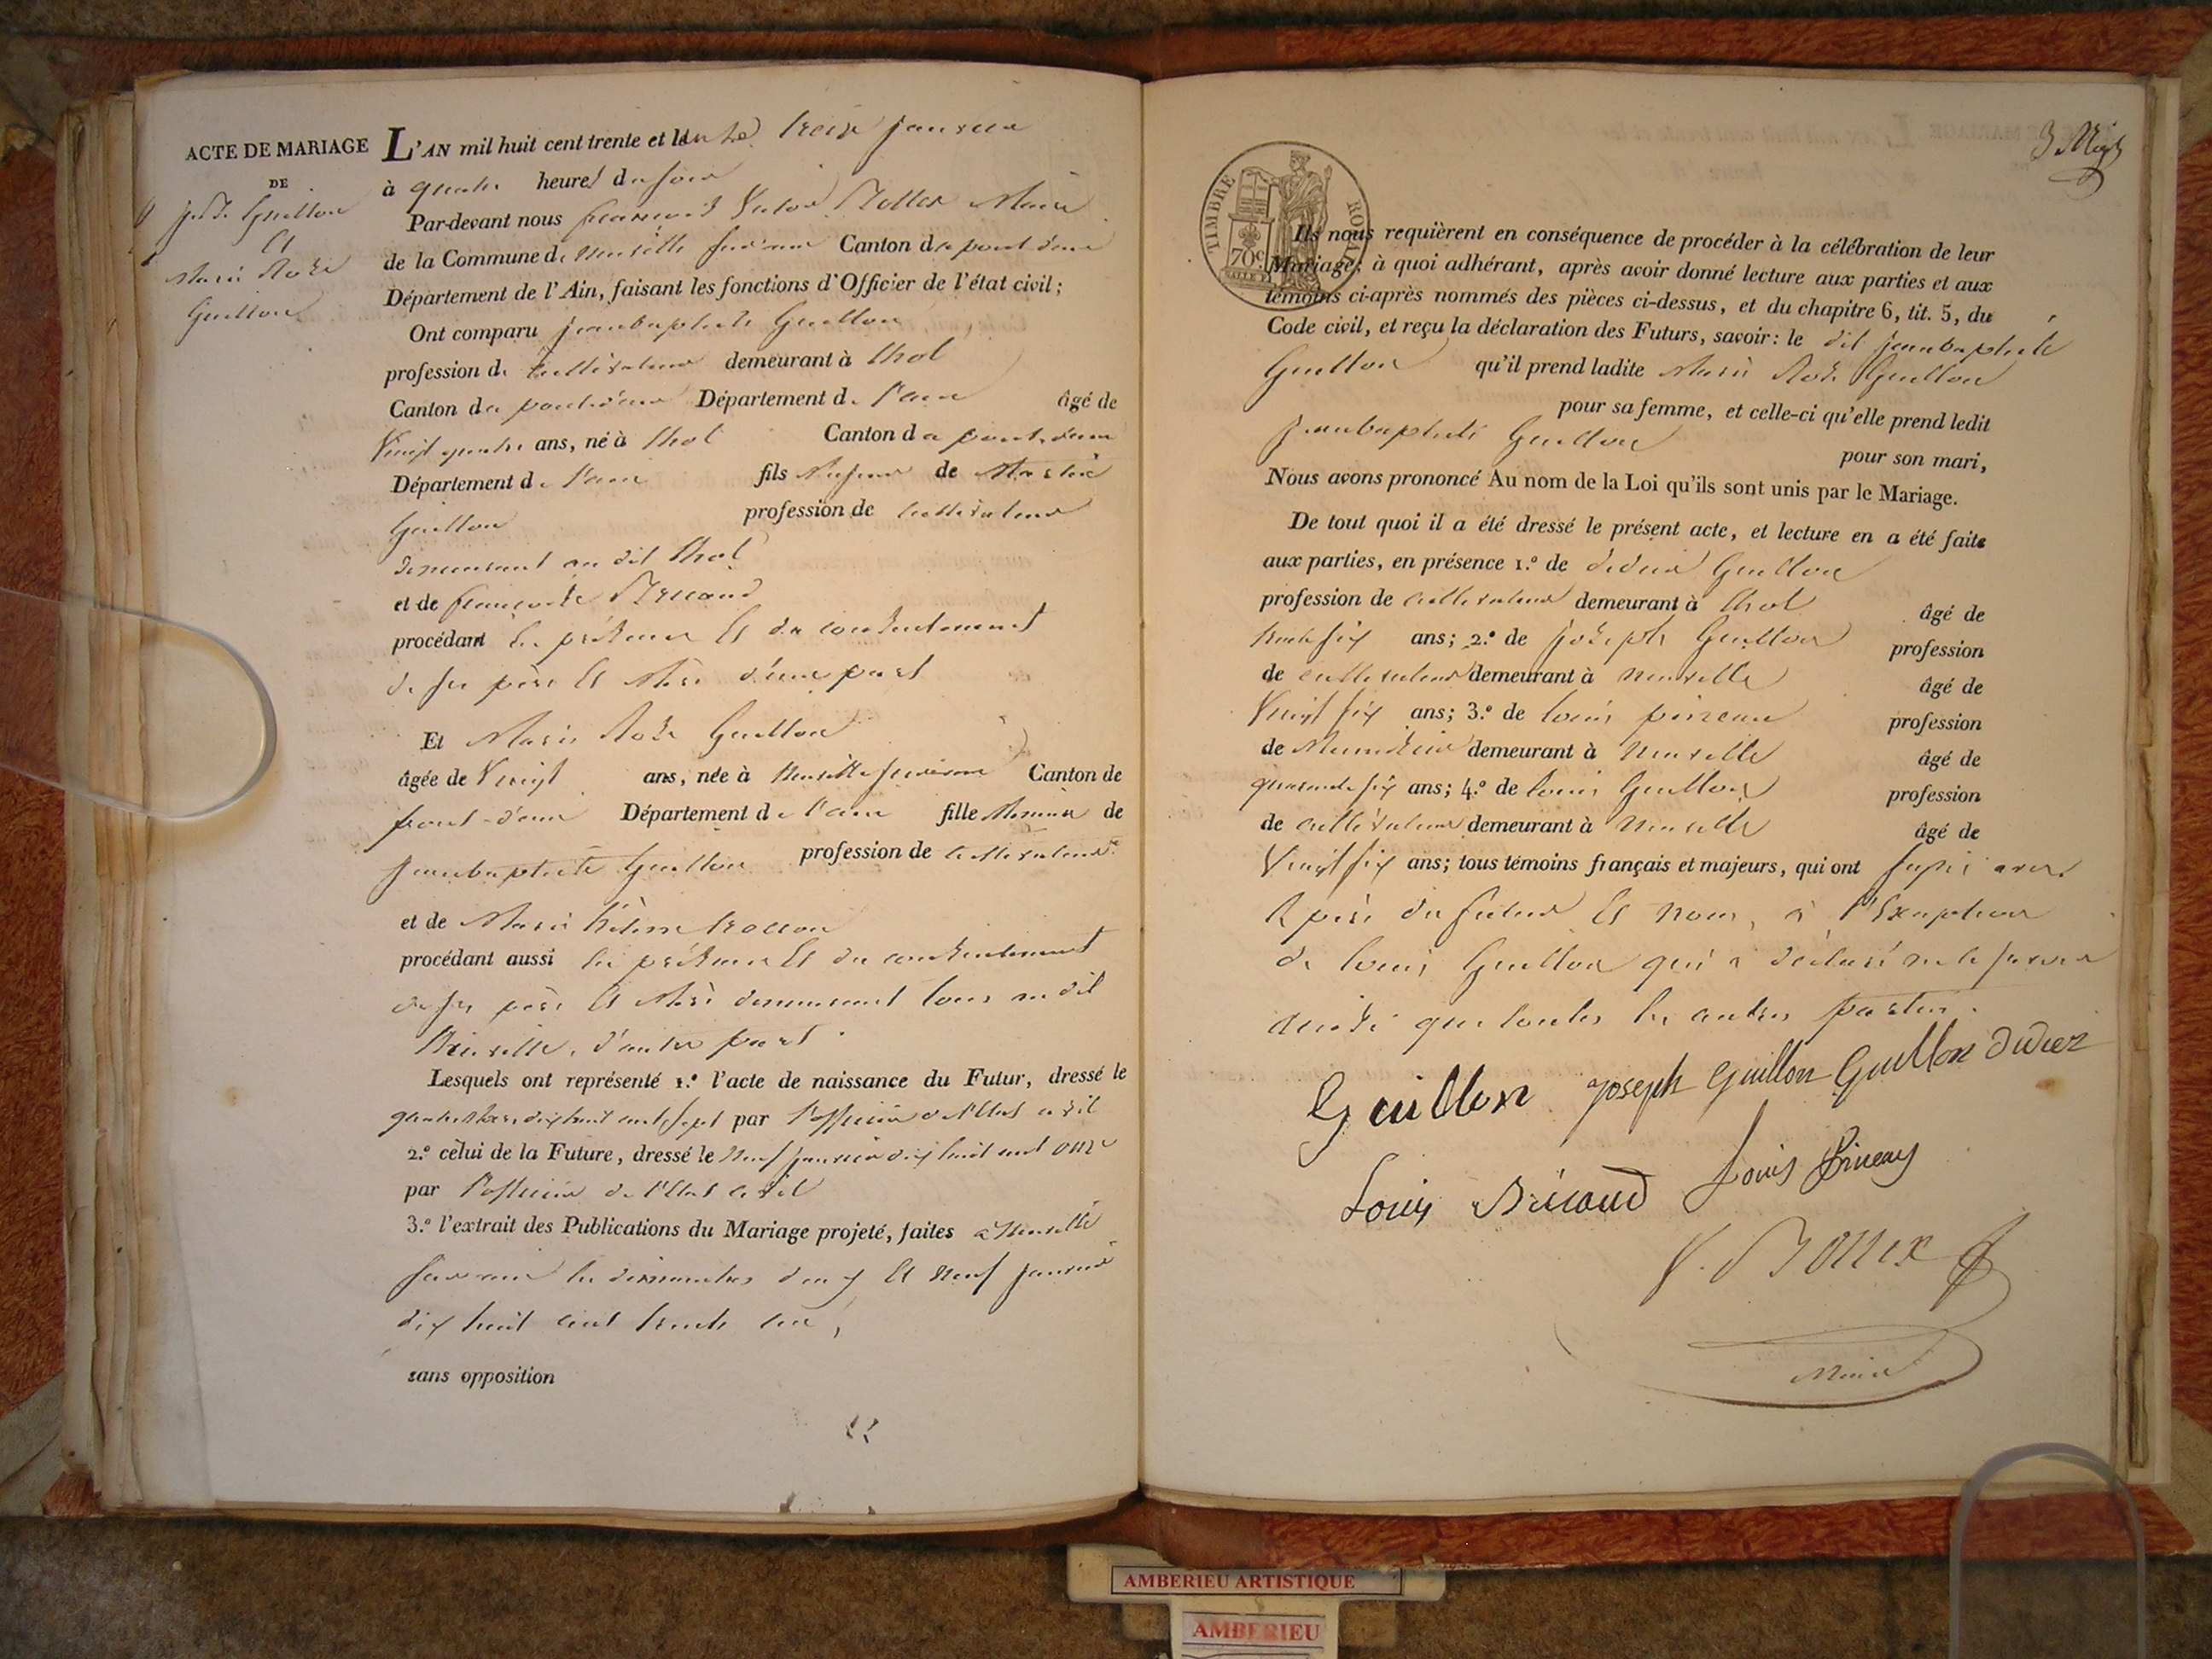 ACTE DE MARIAGE
DE
j.B. Guillon
Et
Marie Rose
Guillon
L'AN mil huit cent trente et un Le treize janvier
à quatre heures du soir
Par-devant nous françois Victor Maire
de la Commune de neuville sur ain Canton de pont d'ain
Département de l'Ain, faisant les fonctions d'Officier de l'état civil;
Ont comparu jeanbaptiste Guillon
profession de cultivateur demeurant à thol
Canton de pont d'ain Département de l'ain âgé de
Vingt quatre ans, né à thol Canton de pont d'ain
Département de l'ain fils majeur de Martin
Guillon profession de cultivateur
demeurant au dit thol
et de françoise
procédant en présence Et du consentement
de ses père Et Mère d'une part
Et Marie Rose Guillon
âgée de Vingt ans, née à neuville sur ain Canton de
pont-d'ain Département de l'ain fille Mineure de
jeanbaptiste Guillon profession de cultivateur
et de Marie
procédant aussi en présence Et du consentement
de ses père Et Mère demeurant tous au dit
Neuville, d'autre part.
Lesquels ont représenté 1.º l'acte de naissance du Futur, dressé le
dix huit cent sept par l'officier de l'Etat civil
2.º celui de la Future, dressé le neuf janvier dix huit cent onze
par l'officier de l'Etat civil
3.º l'extrait des Publications du Mariage projeté, faites à Neuville
sur ain les dimanches deux Et neuf janvier
dix huit cent trente un,
sans opposition
TIMBRE ROYAL
70c
Ils nous requièrent en conséquence de procéder à la célébration de leur
Mariage; à quoi adhérant, après avoir donné lecture aux parties et aux
témoins ci-après nommés des pièces ci-dessus, et du chapitre 6, tit. 5, du
Code civil, et reçu la déclaration des Futurs, savoir: le dit jeanbaptiste
Guillon qu'il prend ladite Marie Rose Guillon
pour sa femme, et celle-ci qu'elle prend ledit
jeanbaptiste Guillon pour son mari,
Nous avons prononcé Au nom de la Loi qu'ils sont unis par le Mariage.
De tout quoi il a été dressé le présent acte, et lecture en a été faite
aux parties, en présence 1.º de didier Guillon
profession de cultivateur demeurant à thol âgé de
trente six ans; 2.º de joseph Guillon profession
de cultivateur demeurant à neuville âgé de
Vingt six ans; 3.º de louis pineau profession
de Menuisier demeurant à Neuville âgé de
quarante six ans; 4.º de louis Guillon profession
de cultivateur demeurant à Neuville âgé de
Vingt six ans; tous témoins français et majeurs, qui ont signé avec
le père du futur Et nous, à l'Exception
de louis Guillon qui a déclaré ne le savoir
ainsi que toutes les autres parties.
Guillon Joseph Guillon Guillon didier
Louis Louis Pineau
Maire
AMBERIEU ARTISTIQUE
AMBERIEU